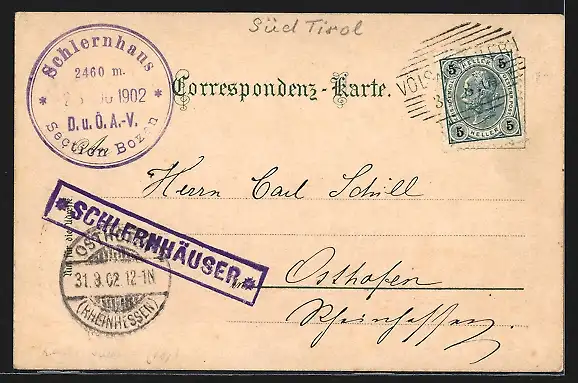 Süd Tirol
Schlernhaus
2460 m.
1902
D. u. Ö. A.-V.
Section Bozen
Correspondenz-Karte.
5 5
5 5
HELLER
Herrn Carl Schill
*SCHLERNHÄUSER*
31.8.02.12-1N
(RHEINHESSEN)
in
Osthofen
Rheinhessen